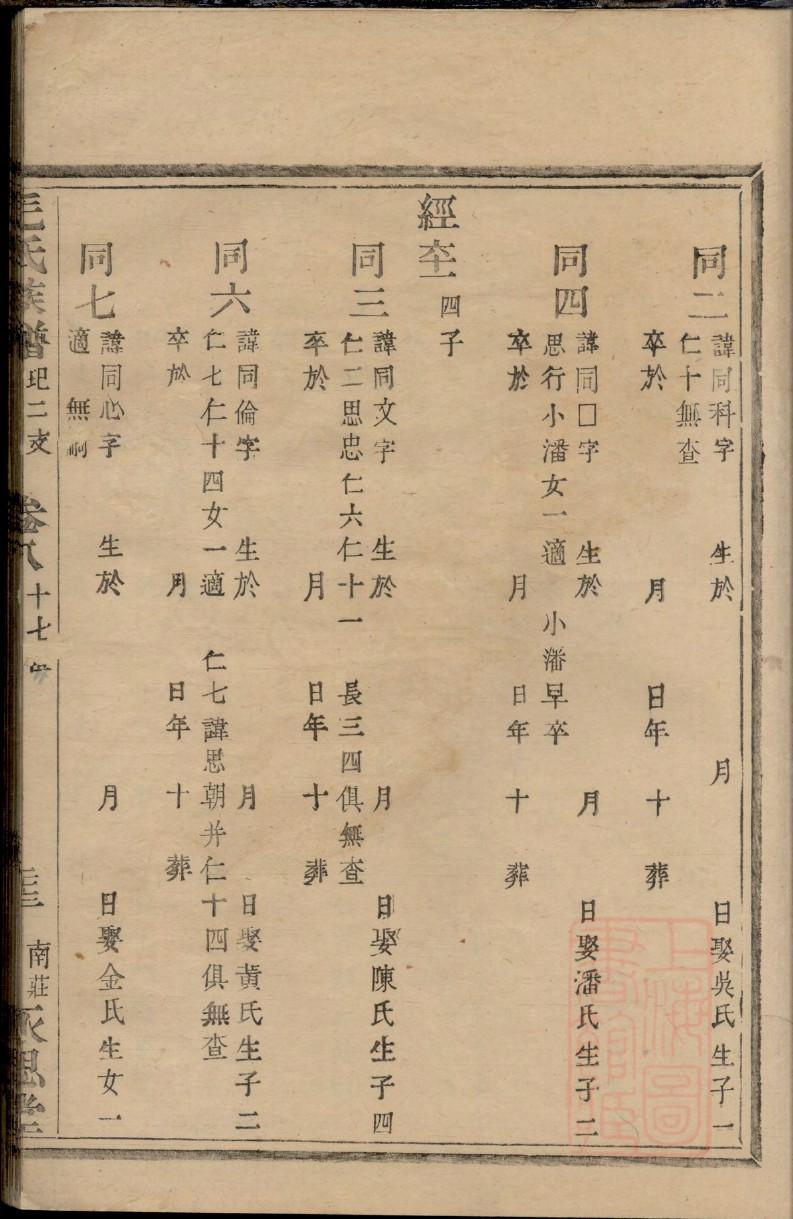 同二
諱同科字 生於 月 日娶吳氏生子一
仁十無查
卒於 月 日年十葬
同四
諱同囗字 生於 月 日娶潘氏生子二
思行小潘女一適 小潘早卒
卒於 月 日年十葬
經 四子
同三
諱同文字 生於 月 日娶陳氏生子四
仁二思忠仁六仁十一 長三四俱無查
卒於 月 日年十葬
同六
諱同倫字 生於 月 日娶黃氏生子二
仁七仁十四女一適 仁七諱思朝并仁十四俱無查
卒於 月 日年十葬
同七
諱同心字 生於 月 日娶金氏生女一
適 無嗣
毛氏族譜 圯二支 卷八 十七世 南莊 永思堂
上海圖書館藏